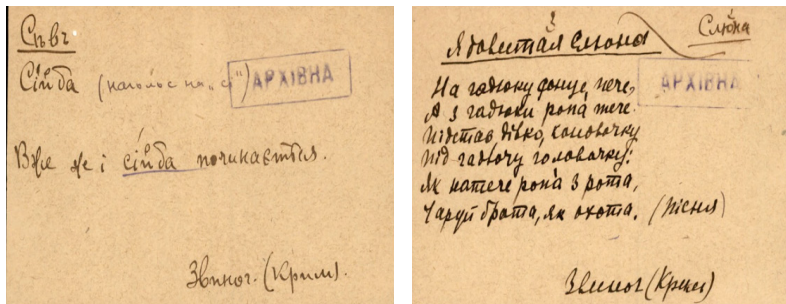 Сѣвъ
Сі́йба (наголос на „і") АРХІВНА
Вже же і сі́йба починається.
Звиног. (Крим).
Слюна
Ядовитая слюна
АРХІВНА
На гадюку сонце пече,
А з гадюки ропа тече.
Підстав, дівко, коновочку
Під гадючу головочку:
Як натече ропа з рота,
Чаруй брата, як охота. (Пісня)
Звиног (Крим)